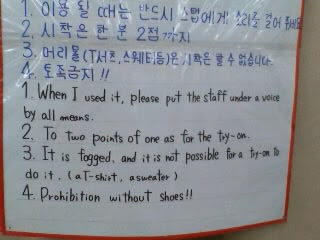 1. 이용 될 때는 반드시 스탭에게 소리를 걸어 주세요
2. 시착은 한 분 2점까지
3. 머리물(T셔츠, 스웨터등)은 시착은 할 수 없습니다.
4. 토족금지!!
1. When I used it, please put the staff under a voice
by all means.
2. To two points of one as for the try-on.
3. It is fogged, and it is not possible for a try-on to
do it. (a T-shirt, a sweater)
4. Prohibition without shoes!!